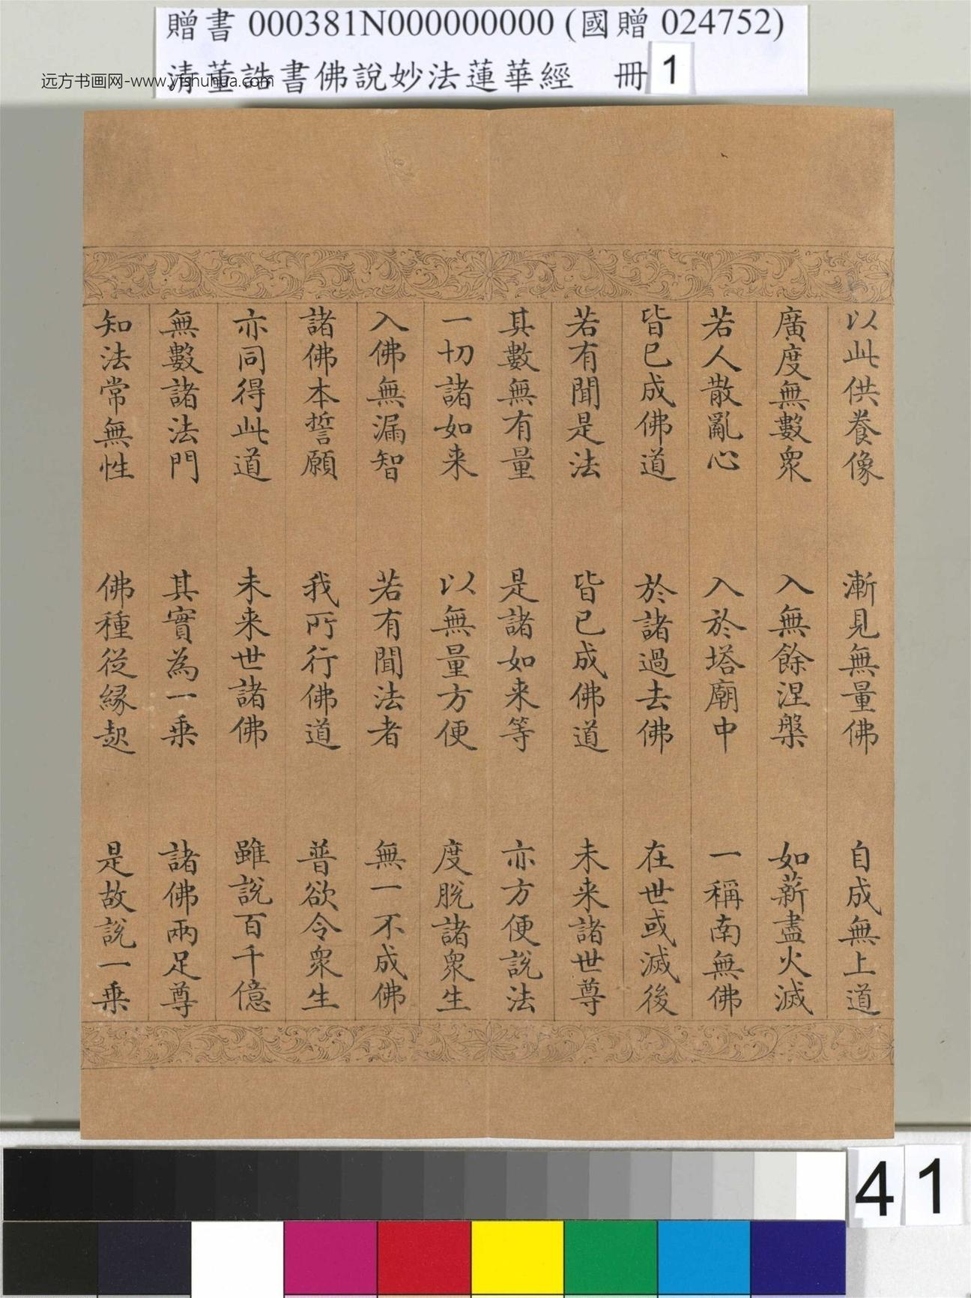 贈書 000381N000000000 (國贈 024752)
清董誥書佛說妙法蓮華經 冊 1
远方书画网-www.yfshuhua.com
以此供養像 漸見無量佛 自成無上道
廣度無數衆 入無餘涅槃 如薪盡火滅
若人散亂心 入於塔廟中 一稱南無佛
皆已成佛道 於諸過去佛 在世或滅後
若有聞是法 皆已成佛道 未来諸世尊
其數無有量 是諸如来等 亦方便說法
一切諸如来 以無量方便 度脫諸衆生
入佛無漏智 若有聞法者 無一不成佛
諸佛本誓願 我所行佛道 普欲令衆生
亦同得此道 未来世諸佛 雖說百千億
無數諸法門 其實為一乗 諸佛兩足尊
知法常無性 佛種從緣起 是故說一乗
41